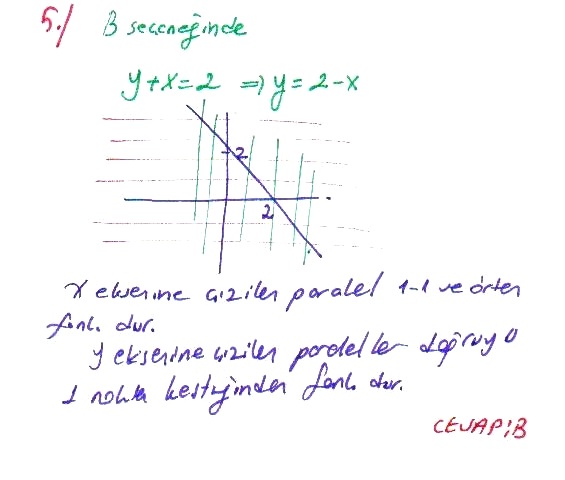 5./ B seçeneğinde
y+x=2 ⇒ y=2-x
2
2
X eksenine çizilen paralel 1-1 ve örten
fonk. dur.
y eksenine çizilen paraleller doğruyu
1 nokta kestiğinden fonk. dur.
CEVAP:B